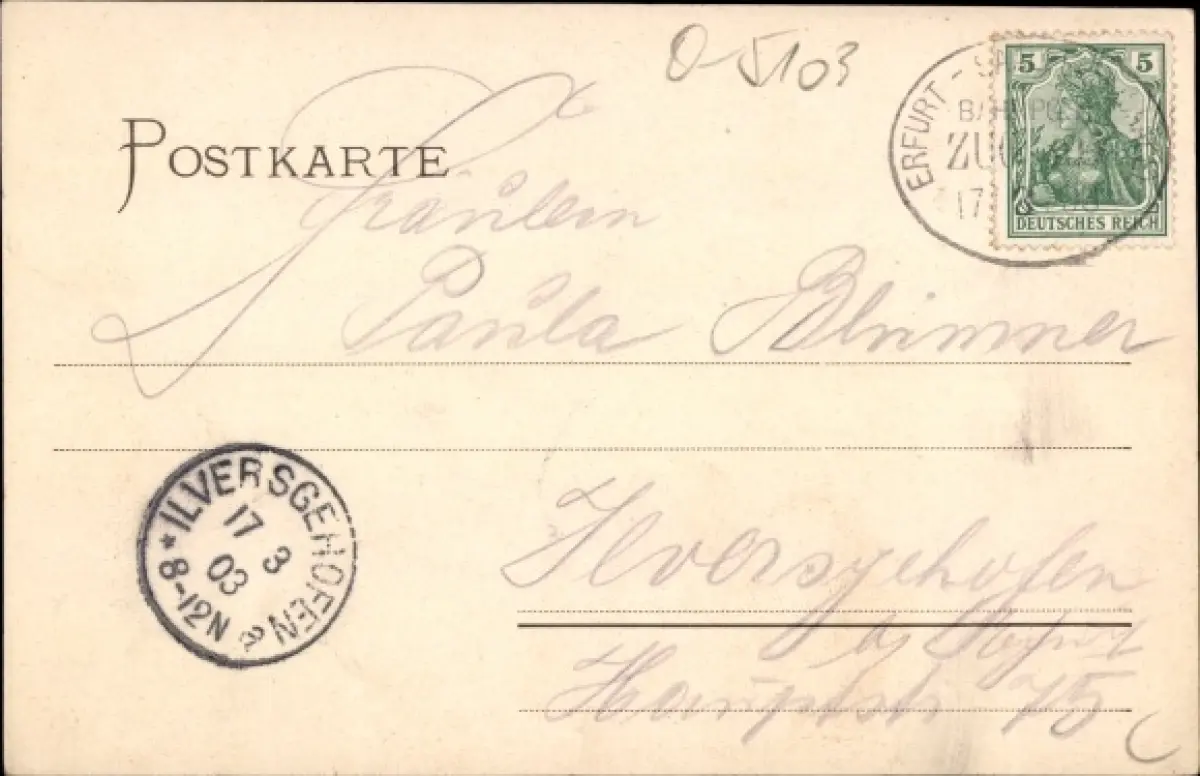 O-5103
POSTKARTE
5 5
DEUTSCHES REICH
ERFURT - SA
BAHNPOST
ZUG
17
Fräulein
Paula Blümner
ILVERSGEHOFEN
17 3
03
8-12N
Ilversgehofen
Hauptstr 75